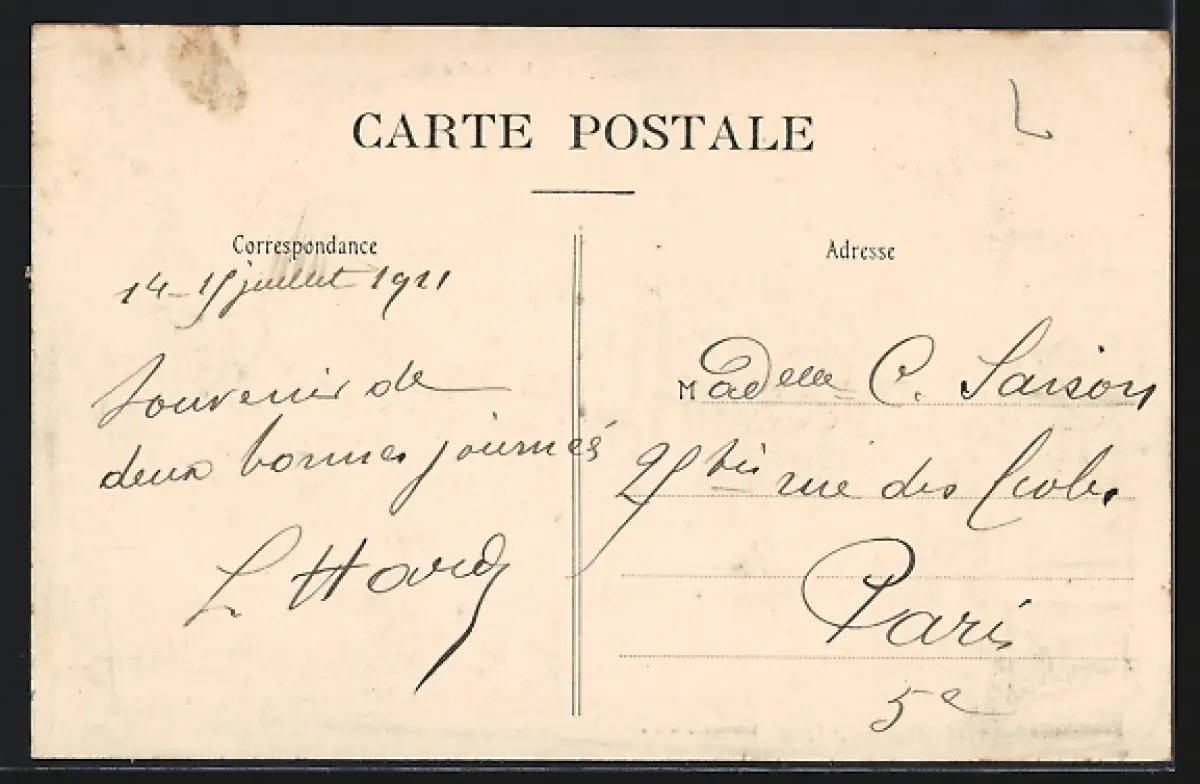 CARTE POSTALE
Correspondance
14-15 juillet 1911
Souvenir de
deux bonnes journés
L Hardy
Adresse
Madelle C. Saison
25 bis rue des Ecoles
Paris
5e